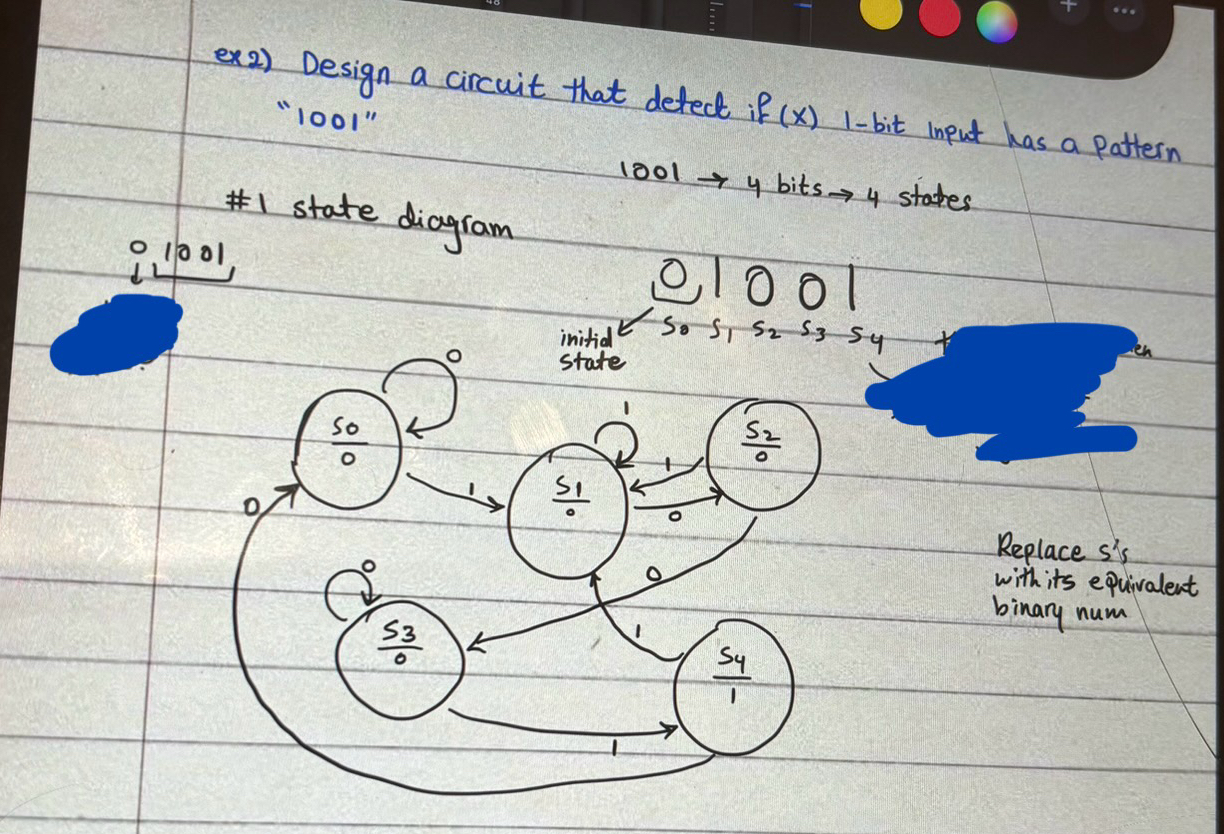 ex2) Design a circuit that detect if (x) 1-bit input has a pattern
"1001"
1001 → 4 bits → 4 states
#1 state diagram
0 1001
0 1 0 0 1
S0 S1 S2 S3 S4
initial
state
0
S0
0
1
1
S1
0
1
0
S2
0
0
0
S3
0
1
1
S4
1
0
Replace s's
with its equivalent
binary num